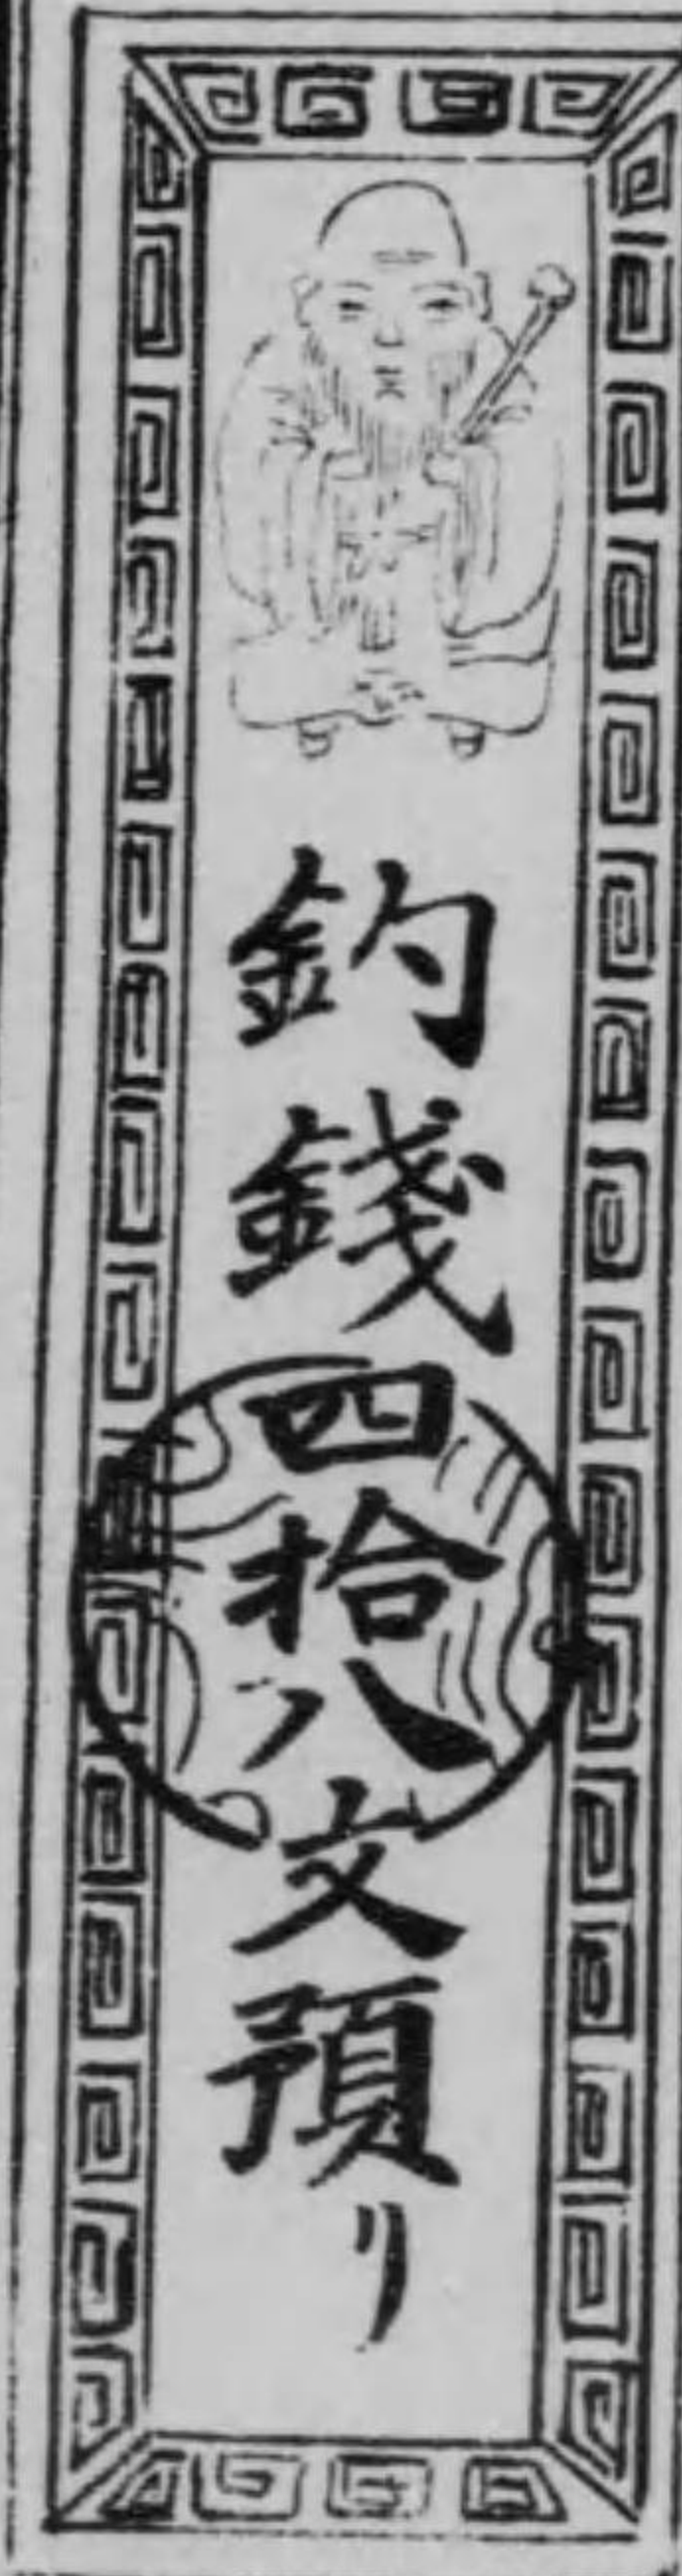 釣錢四拾八文預リ